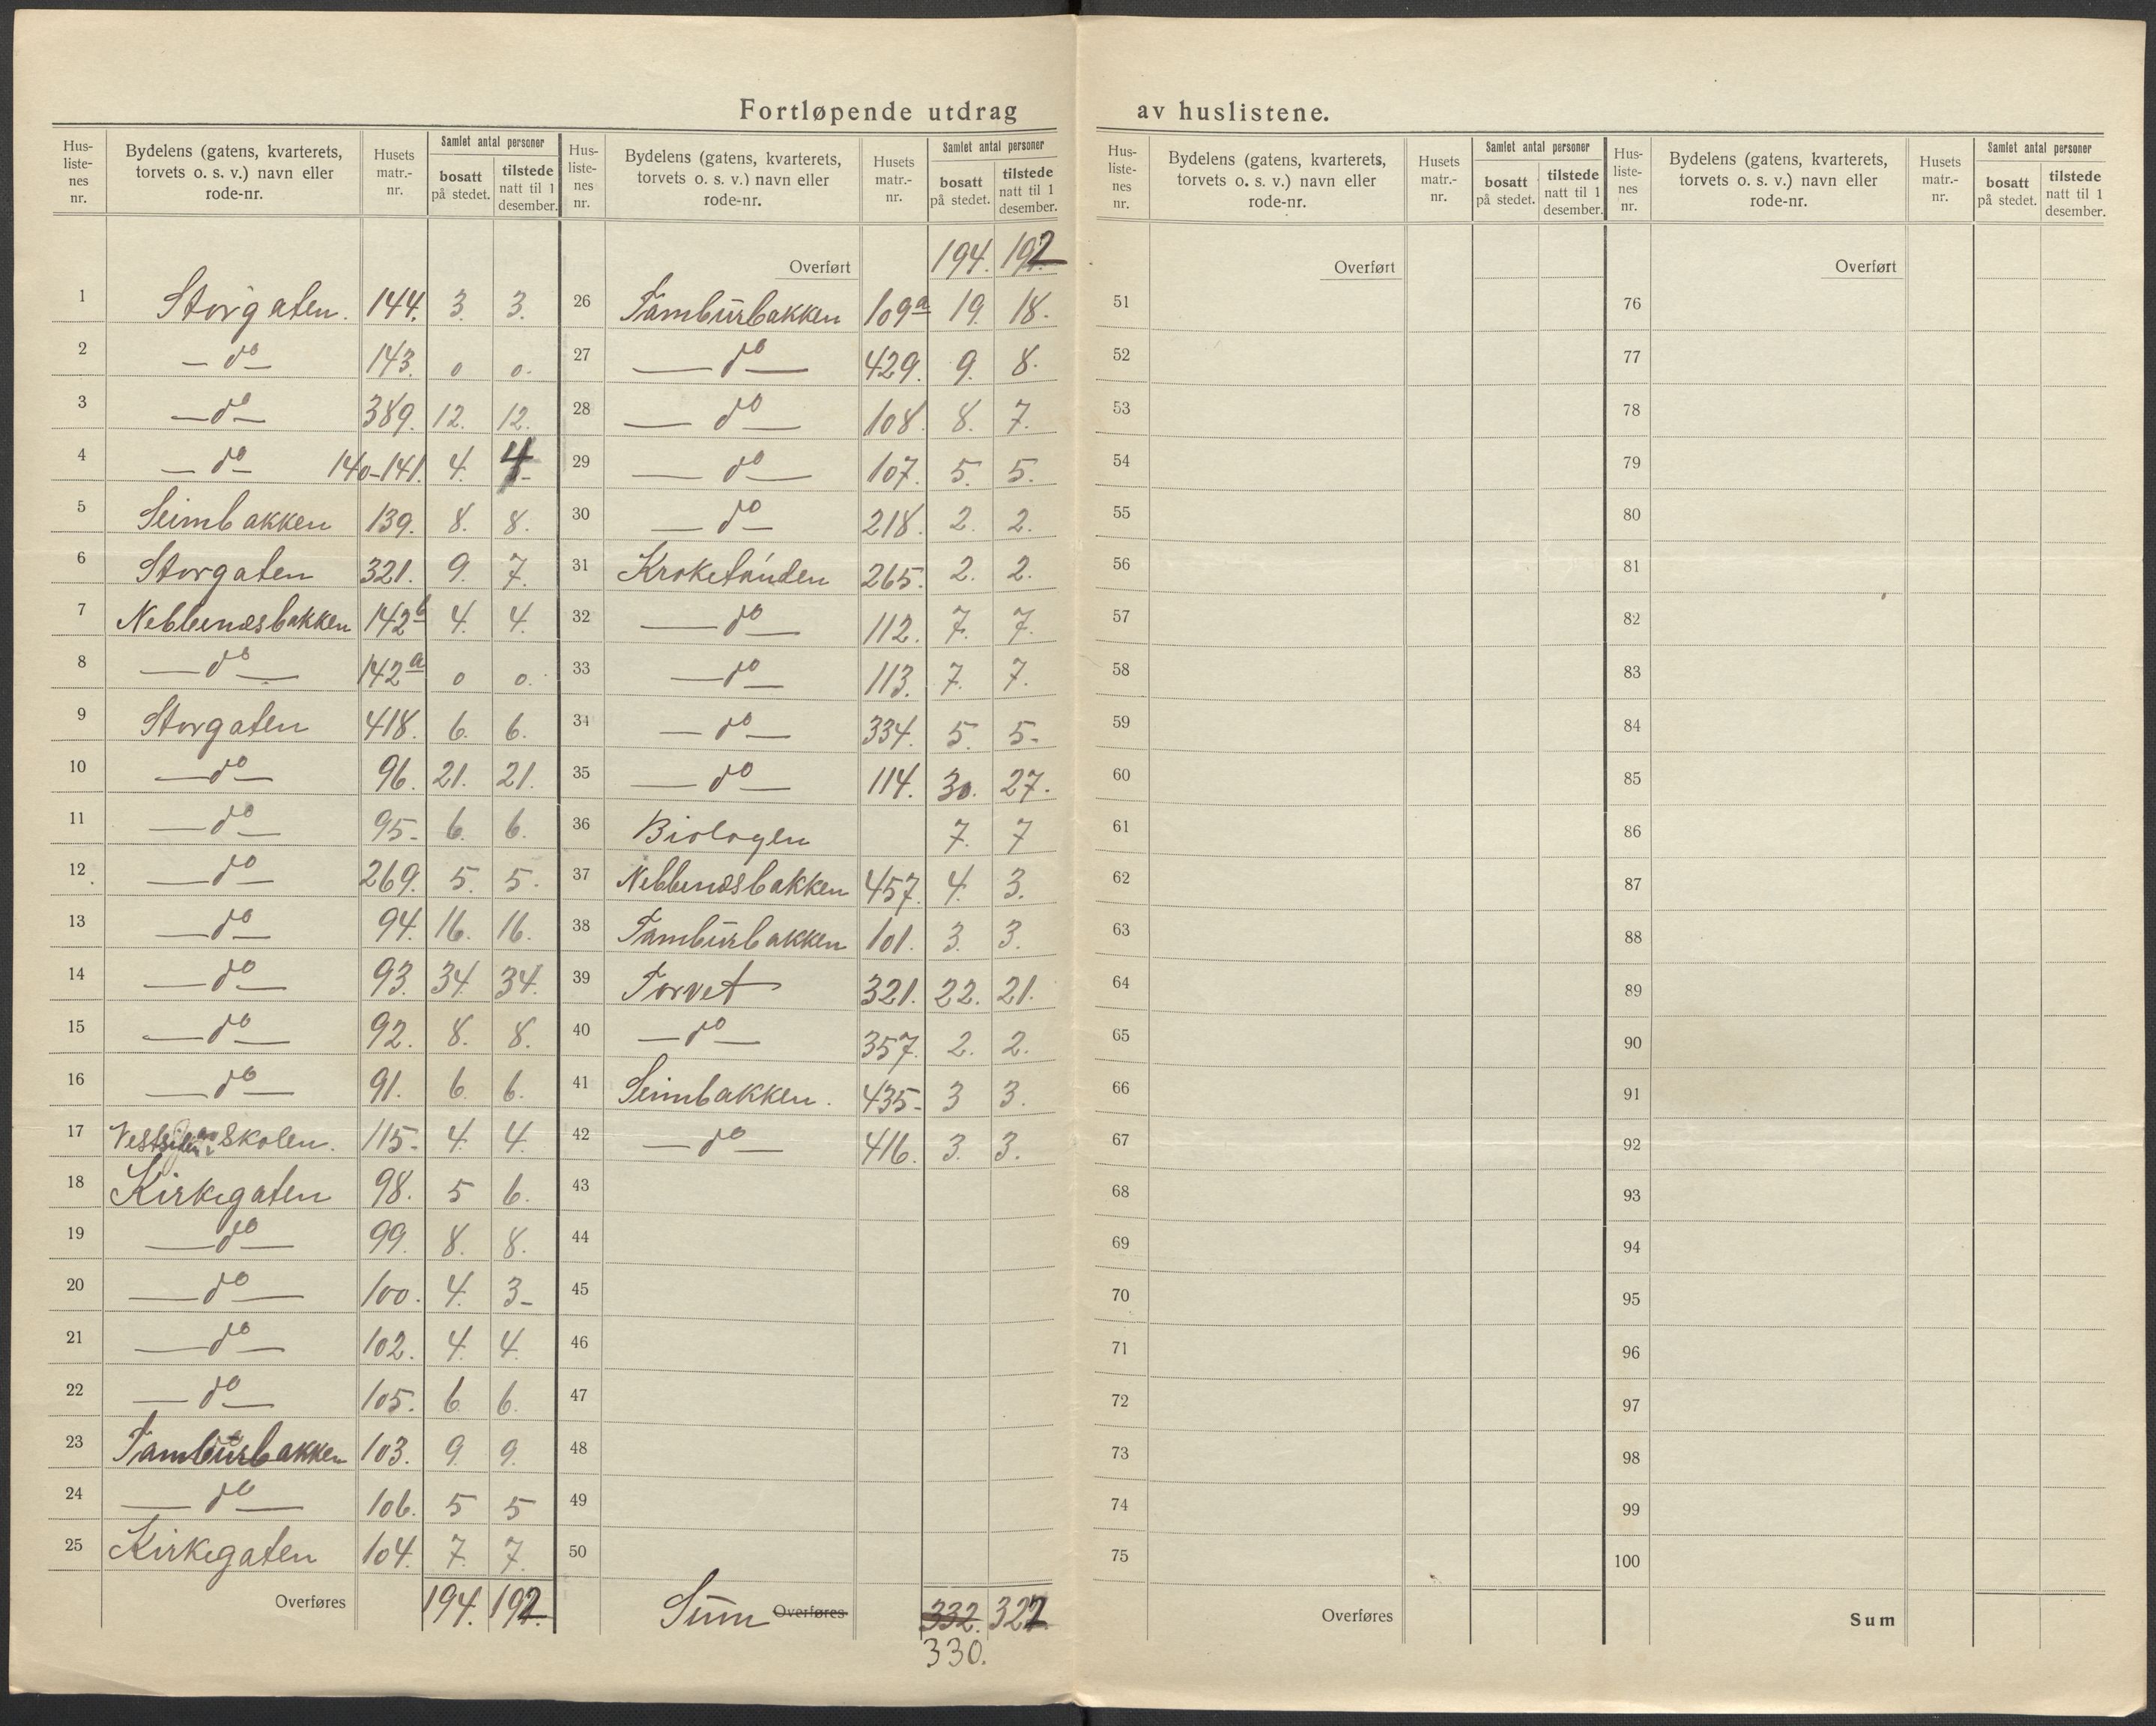 Fortløpende utdrag av huslistene.
Hus-listenes nr. Bydelens (gatens, kvarterets, torvets o. s. v.) navn eller rode-nr. Husets matr.-nr. Samlet antal personer bosatt på stedet. tilstede natt til 1 desember.
1 Storgaten. 144. 3. 3.
2 — do — 143. 0 0.
3 — do — 389. 12. 12.
4 — do — 140-141. 4. 4
5 Seimbakken 139. 8. 8.
6 Storgaten 321. 9. 7.
7 Nebbenæsbakken 142b 4. 4.
8 — do — 142a 0 0.
9 Storgaten 418. 6. 6.
10 — do — 96. 21. 21.
11 — do — 95- 6. 6.
12 — do — 269. 5. 5.
13 — do — 94. 16. 16.
14 — do — 93. 34 34.
15 — do — 92. 8. 8.
16 — do — 91. 6. 6.
17 Skolen. 115- 4. 4.
18 Kirkegaten 98. 5 6.
19 — do — 99. 8. 8.
20 — do — 100. 4. 3-
21 — do — 102. 4. 4.
22 — do — 105. 6 6.
23 Tambúrbakken 103. 9. 9.
24 — do — 106. 5 5
25 Kirkegaten 104. 7. 7.
Overføres 194. 192
Hus-listenes nr. Bydelens (gatens, kvarterets, torvets o. s. v.) navn eller rode-nr. Husets matr.-nr. Samlet antal personer bosatt på stedet. tilstede natt til 1 desember.
Overført 194. 192
26 Tambūrbakken 109a 19. 18.
27 — do — 429. 9. 8.
28 — do — 108. 8. 7.
29 — do — 107. 5. 5.
30 — do — 218. 2. 2.
31 265. 2. 2.
32 — do — 112. 7. 7.
33 — do — 113. 7. 7.
34 — do — 334. 5. 5-
35 — do — 114. 30. 27.
36 Biologen 7. 7
37 Nebbenæsbakken 457. 4. 3.
38 Tambūrbakken 101. 3. 3.
39 Torvet 321. 22. 21.
40 — do — 357. 2. 2.
41 Seimbakken. 435- 3 3.
42 — do — 416. 3. 3.
43
44
45
46
47
48
49
50
Sūm Overføres 332. 322
330.
Hus-listenes nr. Bydelens (gatens, kvarterets, torvets o. s. v.) navn eller rode-nr. Husets matr.-nr. Samlet antal personer bosatt på stedet. tilstede natt til 1 desember.
Overført
51
52
53
54
55
56
57
58
59
60
61
62
63
64
65
66
67
68
69
70
71
72
73
74
75
Overføres
Hus-listenes nr. Bydelens (gatens, kvarterets, torvets o. s. v.) navn eller rode-nr. Husets matr.-nr. Samlet antal personer bosatt på stedet. tilstede natt til 1 desember.
Overført
76
77
78
79
80
81
82
83
84
85
86
87
88
89
90
91
92
93
94
95
96
97
98
99
100
Sum